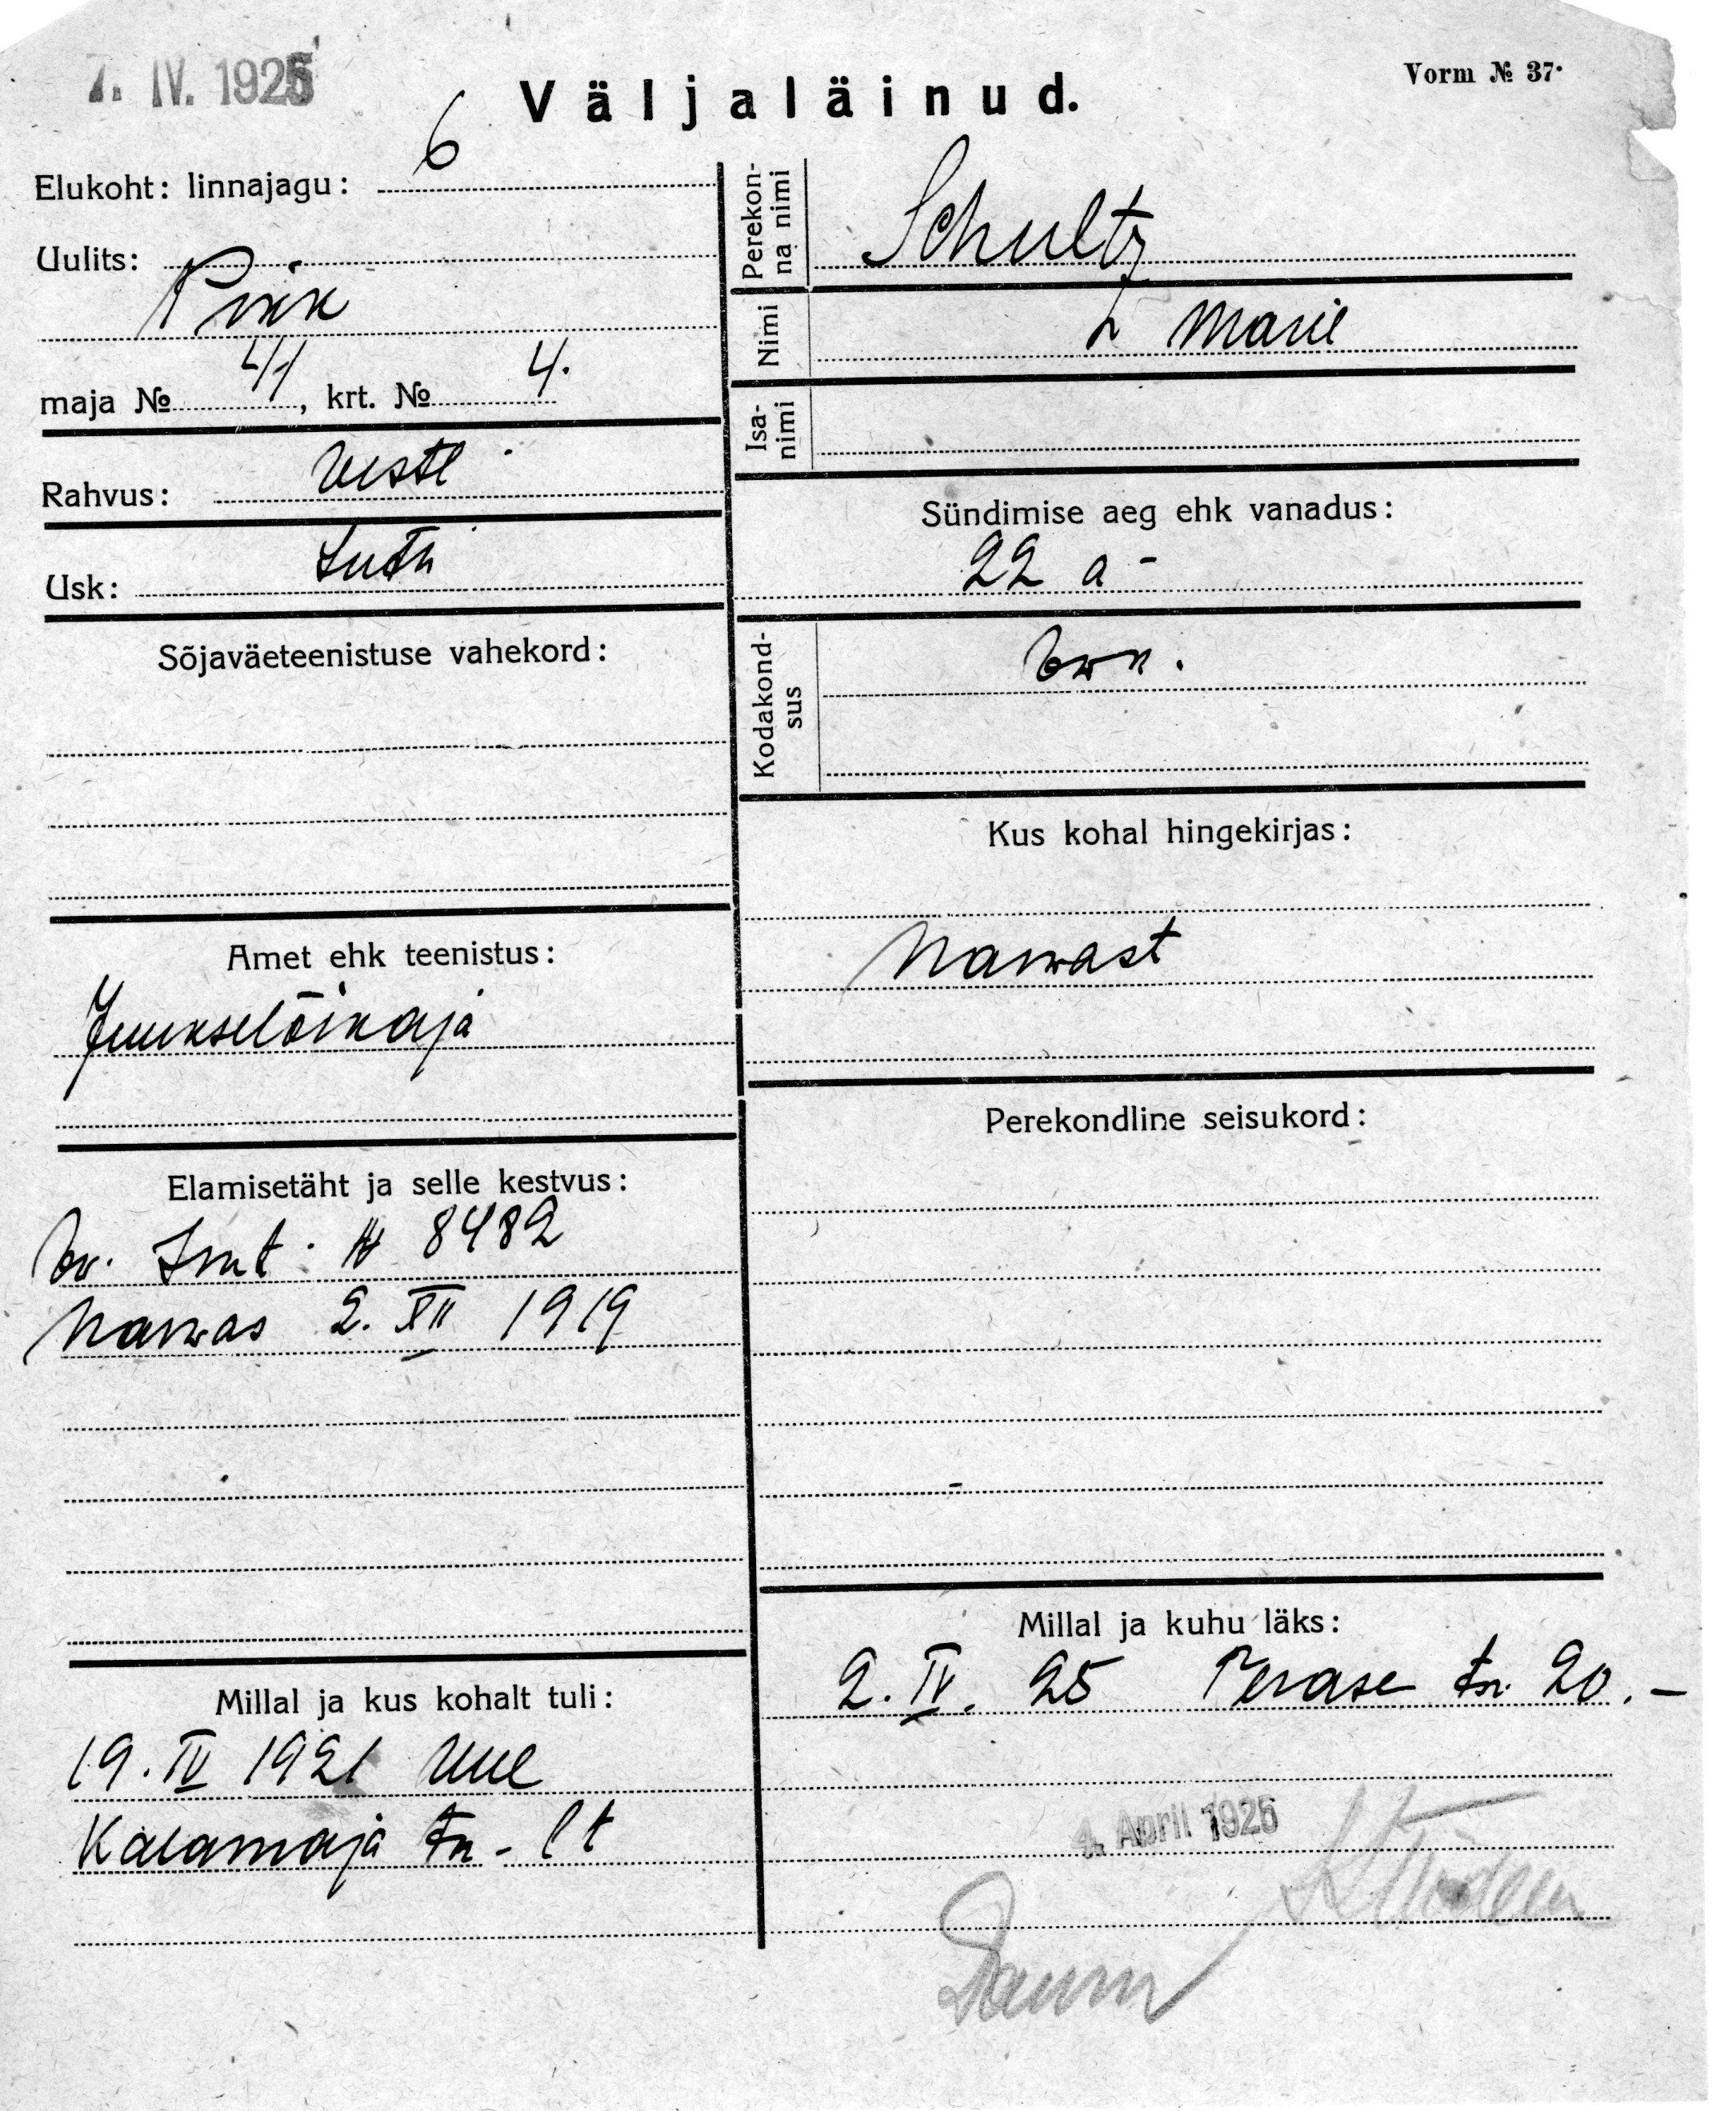 7. IV. 1925
Väljaläinud.
Vorm № 37.
Elukoht: linnajagu: 6
Uulits:
Pikk
maja № 41, krt. № 4.
Rahvus: eestl
Usk: Luth
Sõjaväeteenistuse vahekord:
Amet ehk teenistus:
Juukselõikaja
Elamisetäht ja selle kestvus:
№ 8482
Narwas 2. XII 1919
Millal ja kus kohalt tuli:
19. IV 1921 Uue
Kalamaja tn -
Perekonna nimi
Schultz
Nimi
Marie
Isanimi
Sündimise aeg ehk vanadus:
22 a -
Kodakondsus
Kus kohal hingekirjas:
Narwast
Perekondline seisukord:
Millal ja kuhu läks:
2. IV. 25 Terase tn. 20. -
4. April 1925